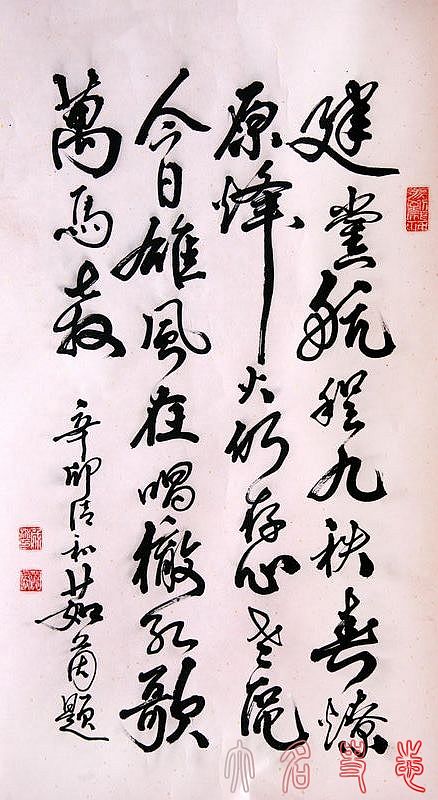 建黨航程九秩春燎
原烽火仍存心老區
今日雄風在唱徹紅歌
萬馬奔
辛卯清和茹茵題
大名史志